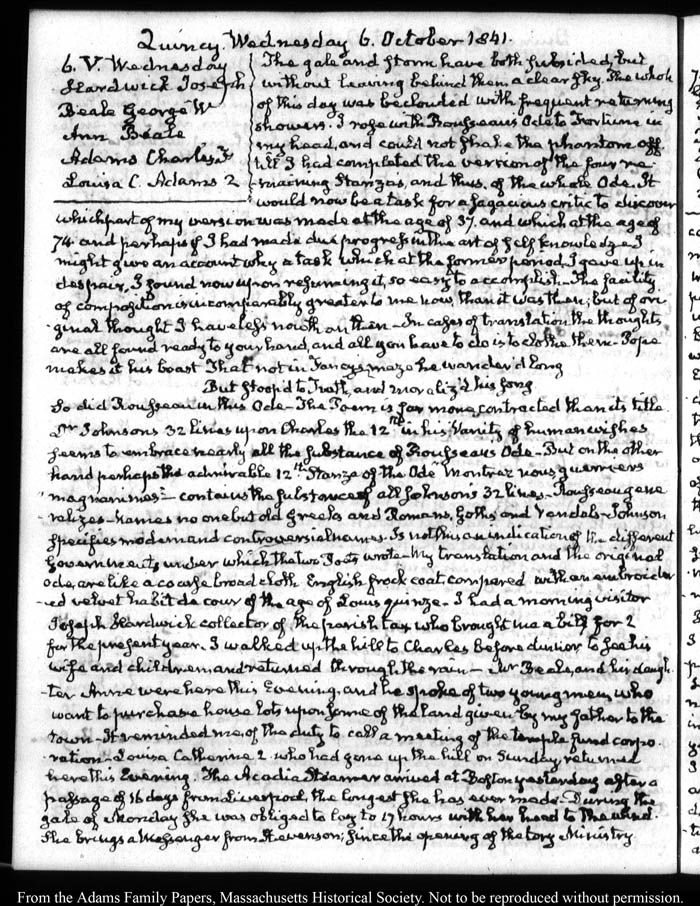 Quincy. Wednesday 6. October 1841.
6. V. Wednesday
Hardwick Joseph
Beale George W
Ann Beale
Adams Charles F
Louisa C. Adams 2
The gale and storm have both subsided, but
without leaving behind them a clear sky. The whole
of this day was beclouded with frequent returning
showers. I rose with Rousseau's Ode to Fortune in
my head, and could not shake the phantom off
till I had completed the version of the four re-
maining Stanzas, and thus, of the whole Ode. It
would now be a task for a sagacious critic to discover
which part of my version was made at the age of 37. and which at the age of
74. and perhaps if I had made due progress in the art of self knowledge I
might give an account why a task which at the former period, I gave up in
despair, I found now upon resuming it, so easy to accomplish— The facility
of composition is incomparably greater to me now, than it was then; but of ori
ginal thought I have less now than then— In cases of translation the thoughts
are all found ready to your hand, and all you have to do is to clothe them— Pope
makes it his boast That not in Fancy's maze he wander'd long
But stoop'd to Truth, and moraliz'd his song
So did Rousseau in this Ode— The Poem is far more contracted than its title.
Dr Johnsons 32 lines upon Charles the 12th in his Vanity of human wishes
seems to embrace nearly all the substance of Rousseaus Ode— But on the other
hand perhaps the admirable 12th Stanza of the Ode "Montrez nous guerriers
magnanimes"— contains the substance of all Johnsons 32 lines— Rousseau gene
ralizes— names no one but old Greeks and Romans, Goths and Vandals— Johnson
specifies modern and controversial names. Is not this an indication of the different
Governments under which the two Poets wrote— My translation and the original
Ode, are like a coarse broad cloth English frock coat compared with an embroider
-ed velvet habit de cour of the age of Louis quinze— I had a morning visitor
Joseph Hardwick collector of the parish tax who brought me a bill for 2
for the present year. I walked up the hill to Charles before dinner to see his
wife and children and returned through the rain— Mr Beale, and his daugh-
-ter Anne were here this Evening, and he spoke of two young men, who
want to purchase house lots upon some of the land given by my father to the
town— It reminded me of the duty to call a meeting of the temple fund corpo-
ration— Louisa Catherine 2 who had gone up the hill on Sunday returned
here this Evening. The Acadia Steamer arrived at Boston yesterday after a
passage of 16 days from Liverpool, the longest she has ever made— During the
gale of Monday she was obliged to lay to 17 hours with her head to the wind.
She brings a Messenger from Stevenson; since the opening of the tory Ministry
From the Adams Family Papers, Massachusetts Historical Society. Not to be reproduced without permission.